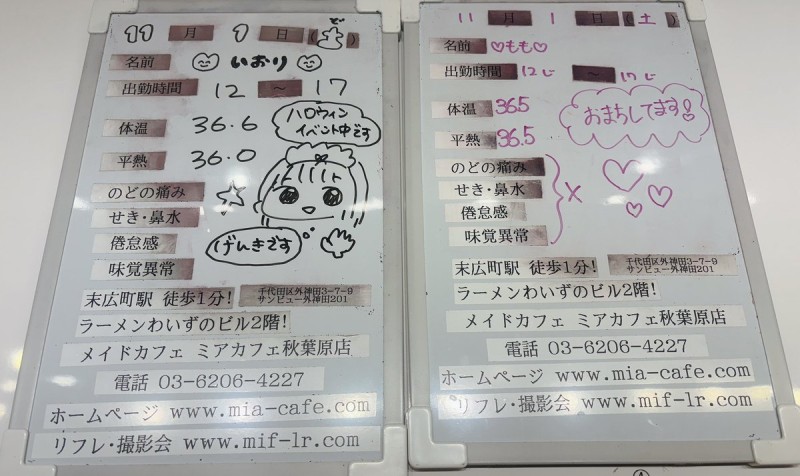 11 月 1 日 (ど)
名前 いおり
出勤時間 12 ～ 17
体温 36.6
ハロウィン
イベント中です
平熱 36.0
のどの痛み
せき・鼻水
倦怠感
げんきです
味覚異常
末広町駅 徒歩1分!
千代田区外神田3-7-9
サンビュー外神田201
ラーメンわいずのビル2階!
メイドカフェ ミアカフェ秋葉原店
電話 03-6206-4227
ホームページ www.mia-cafe.com
リフレ・撮影会 www.mif-lr.com
11 月 1 日 (土)
名前 ♡もも♡
出勤時間 12じ ～ 17じ
体温 36.5
おまちしてます!
平熱 36.5
のどの痛み
せき・鼻水
倦怠感
味覚異常
×
末広町駅 徒歩1分!
千代田区外神田3-7-9
サンビュー外神田201
ラーメンわいずのビル2階!
メイドカフェ ミアカフェ秋葉原店
電話 03-6206-4227
ホームページ www.mia-cafe.com
リフレ・撮影会 www.mif-lr.com